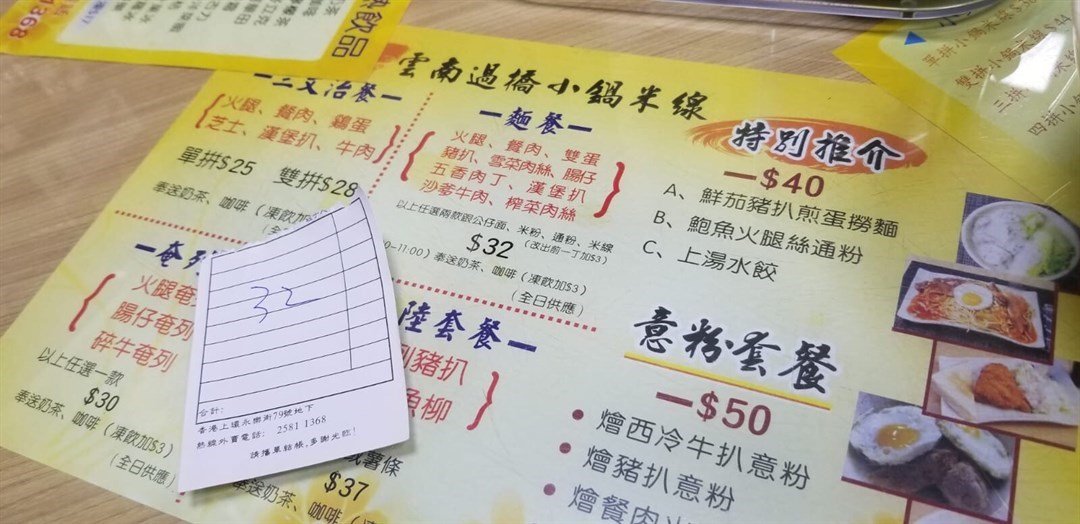 1368
飲品
雲南過橋小鍋米線
三文治餐
火腿、餐肉、鷄蛋
芝士、漢堡扒、牛肉
單拼$25 雙拼$28
奉送奶茶、咖啡（凍飲加$3）
麵餐
火腿、餐肉、雙蛋
豬扒、雪菜肉絲、腸仔
五香肉丁、漢堡扒
沙爹牛肉、榨菜肉絲
以上任選兩款跟公仔面、米粉、通粉、米線
$32（改出前一丁加$3）
-11:00）奉送奶茶、咖啡（凍飲加$3）
（全日供應）
特別推介
—$40
A、鮮茄豬扒煎蛋撈麵
B、鮑魚火腿絲通粉
C、上湯水餃
奄列
火腿奄
腸仔奄列
碎牛奄列
以上任選一款
$30
奉送奶茶、咖啡（凍飲加$3）
（全日供應）
陸套餐
豬扒
魚柳
或薯條
$37
奉送奶茶、咖啡（凍飲加
意粉套餐
—$50
燴西冷牛扒意粉
燴豬扒意粉
燴餐肉
單拼小鍋米線
雙拼小鍋米線
三拼
四拼小
32
合計：
香港上環永樂街79號地下
熱線外賣電話：2581 1368
請攜單結帳,多謝光臨!